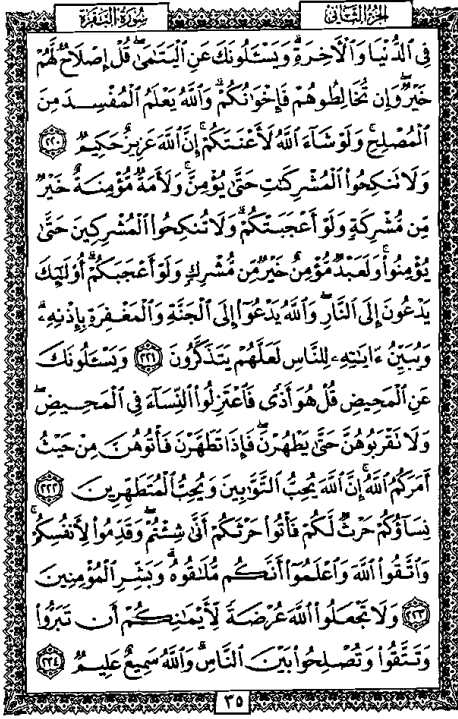 الجزء الثاني
سورة البقرة
فِي الدُّنْيَا وَالْآخِرَةِ ۗ وَيَسْـَٔلُونَكَ عَنِ الْيَتَامَىٰ ۖ قُلْ إِصْلَاحٌ لَّهُمْ
خَيْرٌ ۖ وَإِن تُخَالِطُوهُمْ فَإِخْوَانُكُمْ ۚ وَاللَّهُ يَعْلَمُ الْمُفْسِدَ مِنَ
الْمُصْلِحِ ۚ وَلَوْ شَآءَ اللَّهُ لَأَعْنَتَكُمْ ۚ إِنَّ اللَّهَ عَزِيزٌ حَكِيمٌ ٢٢٠
وَلَا تَنكِحُوا الْمُشْرِكَٰتِ حَتَّىٰ يُؤْمِنَّ ۚ وَلَأَمَةٌ مُّؤْمِنَةٌ خَيْرٌ
مِّن مُّشْرِكَةٍ وَلَوْ أَعْجَبَتْكُمْ ۗ وَلَا تُنكِحُوا الْمُشْرِكِينَ حَتَّىٰ
يُؤْمِنُوا ۚ وَلَعَبْدٌ مُّؤْمِنٌ خَيْرٌ مِّن مُّشْرِكٍ وَلَوْ أَعْجَبَكُمْ ۗ أُولَٰٓئِكَ
يَدْعُونَ إِلَى النَّارِ ۖ وَاللَّهُ يَدْعُوٓا إِلَى الْجَنَّةِ وَالْمَغْفِرَةِ بِإِذْنِهِ ۖ
وَيُبَيِّنُ ءَايَٰتِهِ لِلنَّاسِ لَعَلَّهُمْ يَتَذَكَّرُونَ ٢٢١ وَيَسْـَٔلُونَكَ
عَنِ الْمَحِيضِ ۖ قُلْ هُوَ أَذًى فَاعْتَزِلُوا النِّسَآءَ فِي الْمَحِيضِ ۖ
وَلَا تَقْرَبُوهُنَّ حَتَّىٰ يَطْهُرْنَ ۖ فَإِذَا تَطَهَّرْنَ فَأْتُوهُنَّ مِنْ حَيْثُ
أَمَرَكُمُ اللَّهُ ۚ إِنَّ اللَّهَ يُحِبُّ التَّوَّٰبِينَ وَيُحِبُّ الْمُتَطَهِّرِينَ ٢٢٢
نِسَآؤُكُمْ حَرْثٌ لَّكُمْ فَأْتُوا حَرْثَكُمْ أَنَّىٰ شِئْتُمْ ۖ وَقَدِّمُوا لِأَنفُسِكُمْ ۚ
وَاتَّقُوا اللَّهَ وَاعْلَمُوٓا أَنَّكُم مُّلَٰقُوهُ ۗ وَبَشِّرِ الْمُؤْمِنِينَ
٢٢٣ وَلَا تَجْعَلُوا اللَّهَ عُرْضَةً لِّأَيْمَٰنِكُمْ أَن تَبَرُّوا
وَتَتَّقُوا وَتُصْلِحُوا بَيْنَ النَّاسِ ۗ وَاللَّهُ سَمِيعٌ عَلِيمٌ ٢٢٤
٣٥